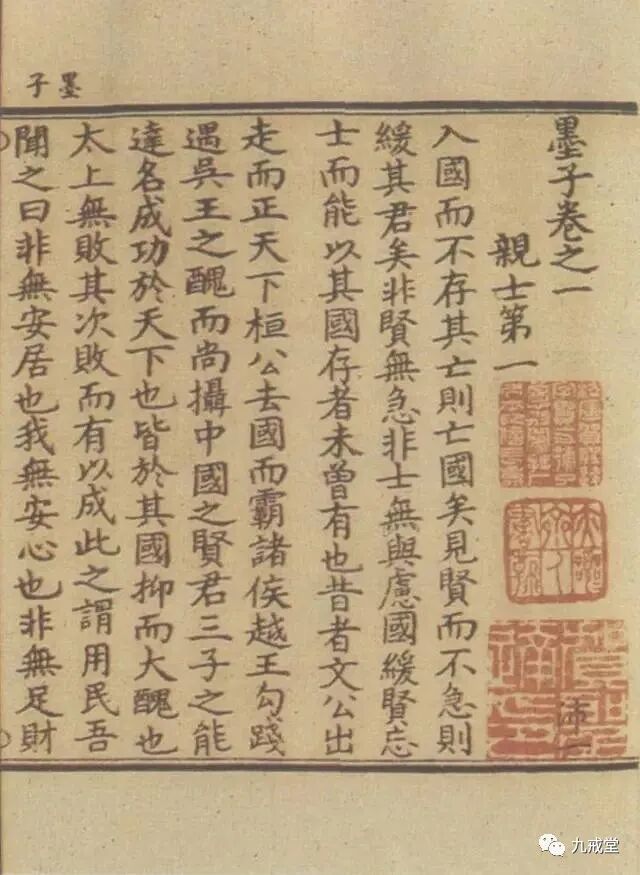 墨子
墨子卷之一
親士第一
入國而不存其亡則亡國矣見賢而不急則
緩其君矣非賢無急非士無與慮國緩賢忘
士而能以其國存者未曾有也昔者文公出
走而正天下桓公去國而霸諸侯越王勾踐
遇吳王之醜而尚攝中國之賢君三子之能
達名成功於天下也皆於其國抑而大醜也
太上無敗其次敗而有以成此之謂用民吾
聞之曰非無安居也我無安心也非無足財
九戒堂